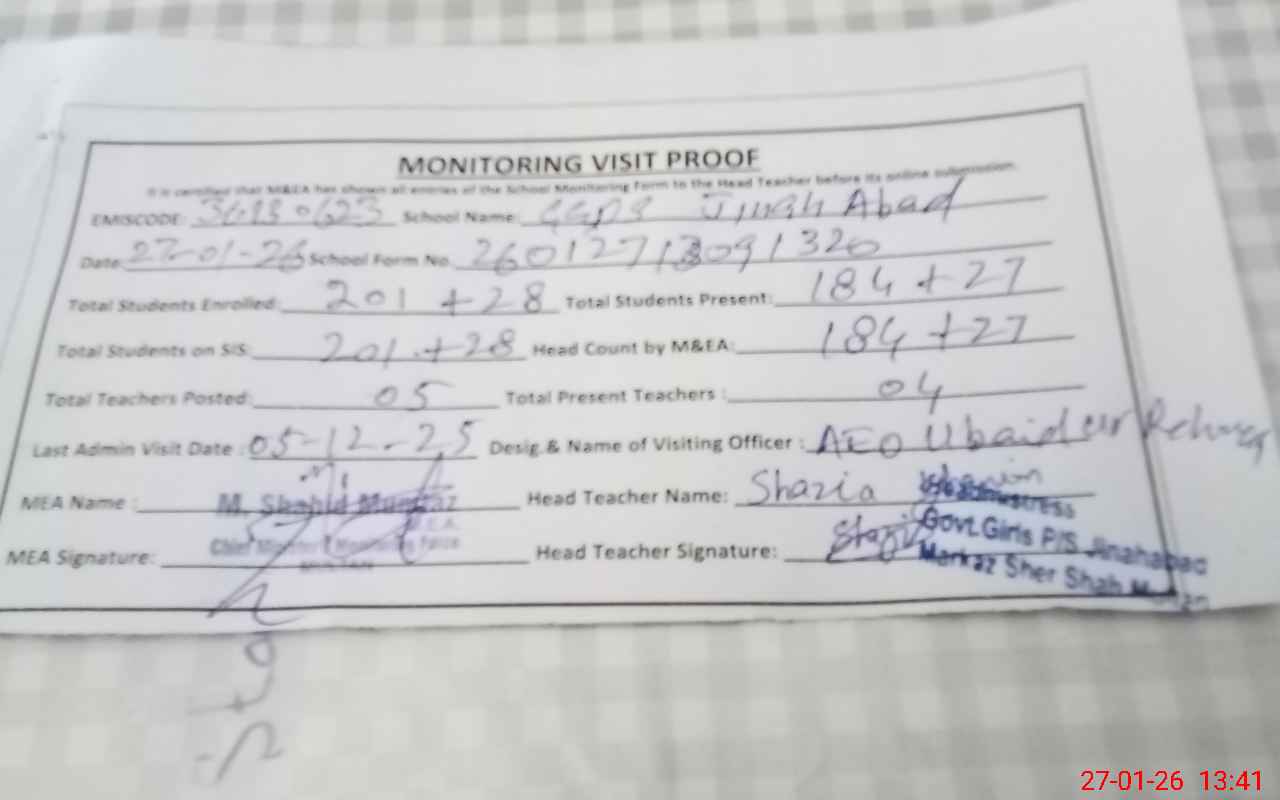 MONITORING VISIT PROOF
It is certified that M&EA has shown all entries of the School Monitoring Form to the Head Teacher before its online submission.
EMISCODE: School Name: GGPS Jinah Abad
Date: 27-01-26 School Form No. 2601271309 1320
Total Students Enrolled: 201 + 28 Total Students Present: 184 + 27
Total Students on SIS: 201 + 28 Head Count by M&EA: 184 + 27
Total Teachers Posted: 05 Total Present Teachers : 04
Last Admin Visit Date : 05-12-25 Desig & Name of Visiting Officer : AEO Ubaid ur Rehman
MEA Name : M. Shahid Mumtaz Head Teacher Name: Shazia
Headmistress
MEA Signature: Head Teacher Signature: Shazia
Govt. Girls P/S Jinahabad
Markaz Sher Shah Multan
27-01-26 13:41